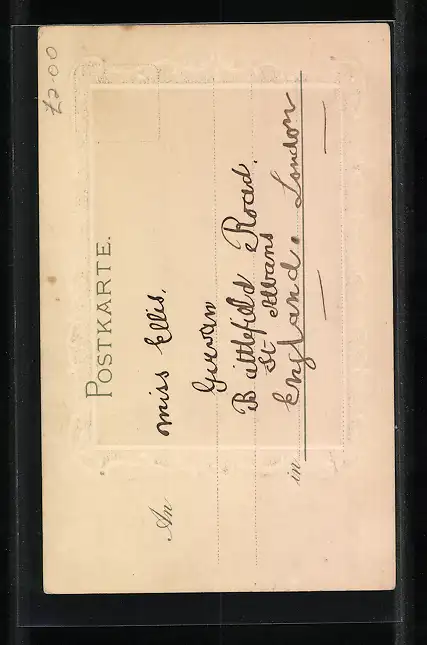 £2-00
POSTKARTE.
An
miss Ellis.
Battlefield Road.
St Albans
in England. London